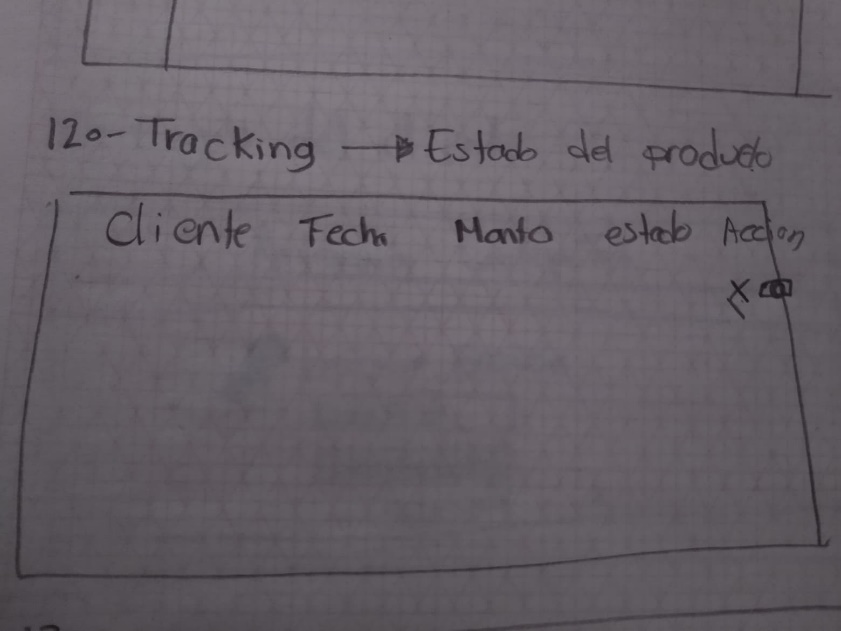 12o- Tracking → Estado del producto
Cliente Fecha Monto estado Accion
X